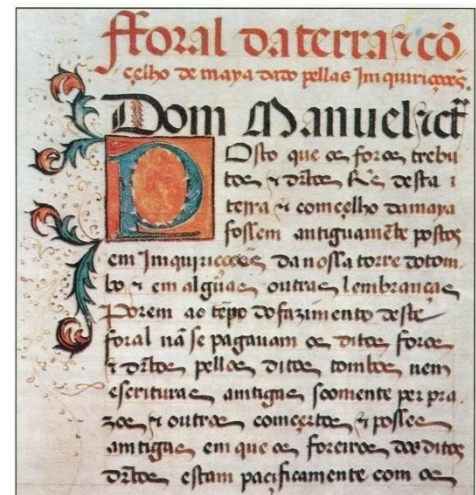 fforal da terra & cõ
çelho de maya dado pellas Imquiriçoões
Dom Manuel &ct
Posto que os foros trebu
tos & drtos Re desta
terra & comçelho damaya
fossem antiguamẽte postos
em Imquiricoões da nossa torre dotom
bo & em algũas outras lembranças
Porem ao tẽpo dofazimento deste
foral nã se pagauam os ditos foros
& drtos pellos ditos tombos nem
escrituras amtigas soomente per pra
zos & outros comçertos & posses
amtigas em que os foreiros dos ditos
drtos estam paçificamente com os